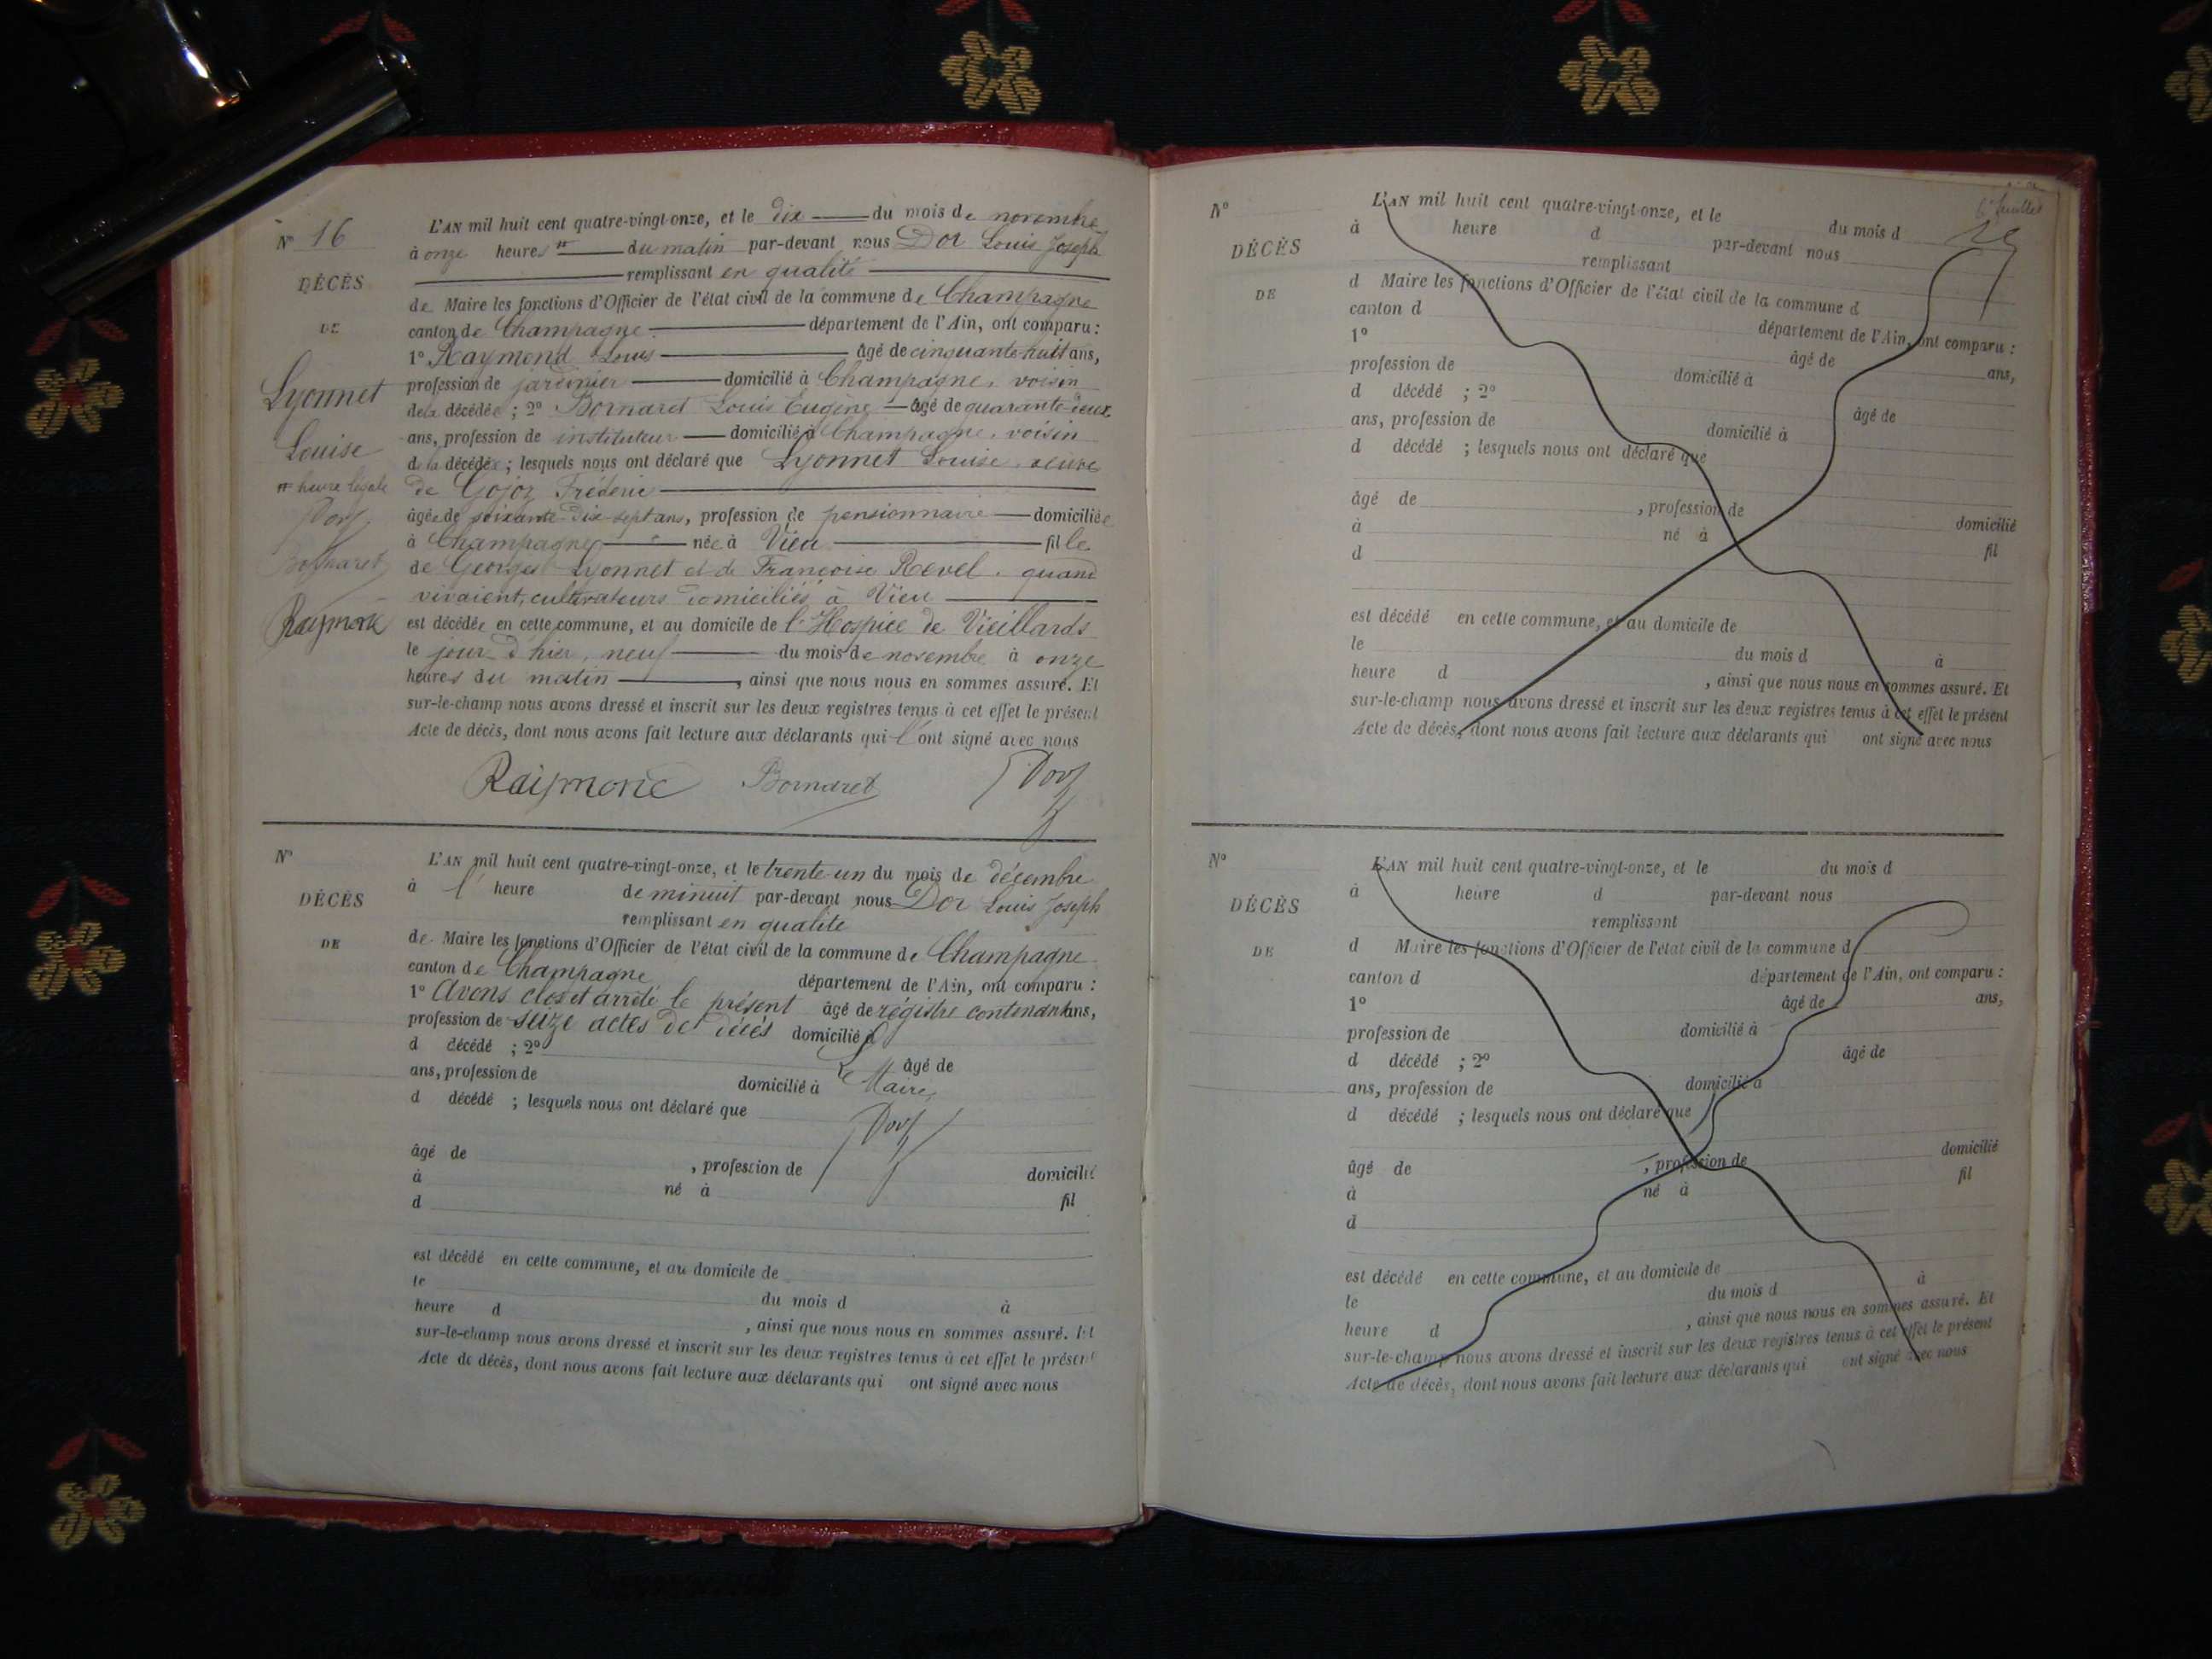 N° 16
DÉCÈS
DE
Lyonnet
Louise
# heure légale
Dor
Bornaret
Raymond
L'AN mil huit cent quatre-vingt-onze, et le dix du mois de novembre
à onze heures # du matin par-devant nous Dor Louis Joseph
remplissant en qualité
de Maire les fonctions d'Officier de l'état civil de la commune de Champagne
canton de Champagne département de l'Ain, ont comparu :
1° Raymond Louis âgé de cinquante huit ans,
profession de jardinier domicilié à Champagne, voisin
de la décédée ; 2° Bornaret Louis Eugène âgé de quarante-deux
ans, profession de instituteur domicilié à Champagne, voisin
de la décédée ; lesquels nous ont déclaré que Lyonnet Louise, veuve
de Gojoz Fréderic
âgée de soixante-dix-sept ans, profession de pensionnaire domiciliée
à Champagne née à Vieu fille
de Georges Lyonnet et de Françoise Revel, quand
vivaient, cultivateurs domiciliés à Vieu
est décédée en cette commune, et au domicile de l'Hospice de Vieillards
le jour d'hier, neuf du mois de novembre à onze
heures du matin, ainsi que nous nous en sommes assuré. Et
sur-le-champ nous avons dressé et inscrit sur les deux registres tenus à cet effet le présent
Acte de décès, dont nous avons fait lecture aux déclarants qui l'ont signé avec nous
Raymond Bornaret Dor
N°
DÉCÈS
DE
L'AN mil huit cent quatre-vingt-onze, et le trente-un du mois de décembre
à l' heure de minuit par-devant nous Dor Louis Joseph
remplissant en qualité
de Maire les fonctions d'Officier de l'état civil de la commune de Champagne
canton de Champagne département de l'Ain, ont comparu :
1° Avons clos et arrêté le présent âgé de régistre contenant ans,
profession de seize actes de décès domicilié à
d décédé ; 2° âgé de
Le Maire,
ans, profession de domicilié à
d décédé ; lesquels nous ont déclaré que
Dor
âgé de , profession de domicilié
à né à fil
d
est décédé en cette commune, et au domicile de
le du mois d à
heure d , ainsi que nous nous en sommes assuré. Et
sur-le-champ nous avons dressé et inscrit sur les deux registres tenus à cet effet le présent
Acte de décès, dont nous avons fait lecture aux déclarants qui ont signé avec nous
6e feuillet
N°
DÉCÈS
DE
L'AN mil huit cent quatre-vingt-onze, et le du mois d
à heure d par-devant nous
remplissant
d Maire les fonctions d'Officier de l'état civil de la commune d
canton d département de l'Ain, ont comparu :
1° âgé de ans,
profession de domicilié à
d décédé ; 2° âgé de
ans, profession de domicilié à
d décédé ; lesquels nous ont déclaré que
âgé de , profession de domicilié
à né à fil
d
est décédé en cette commune, et au domicile de
le du mois d à
heure d , ainsi que nous nous en sommes assuré. Et
sur-le-champ nous avons dressé et inscrit sur les deux registres tenus à cet effet le présent
Acte de décès, dont nous avons fait lecture aux déclarants qui ont signé avec nous
N°
DÉCÈS
DE
L'AN mil huit cent quatre-vingt-onze, et le du mois d
à heure d par-devant nous
remplissant
d Maire les fonctions d'Officier de l'état civil de la commune d
canton d département de l'Ain, ont comparu :
1° âgé de ans,
profession de domicilié à
d décédé ; 2° âgé de
ans, profession de domicilié à
d décédé ; lesquels nous ont déclaré que
âgé de , profession de domicilié
à né à fil
d
est décédé en cette commune, et au domicile de
le du mois d à
heure d , ainsi que nous nous en sommes assuré. Et
sur-le-champ nous avons dressé et inscrit sur les deux registres tenus à cet effet le présent
Acte de décès, dont nous avons fait lecture aux déclarants qui ont signé avec nous